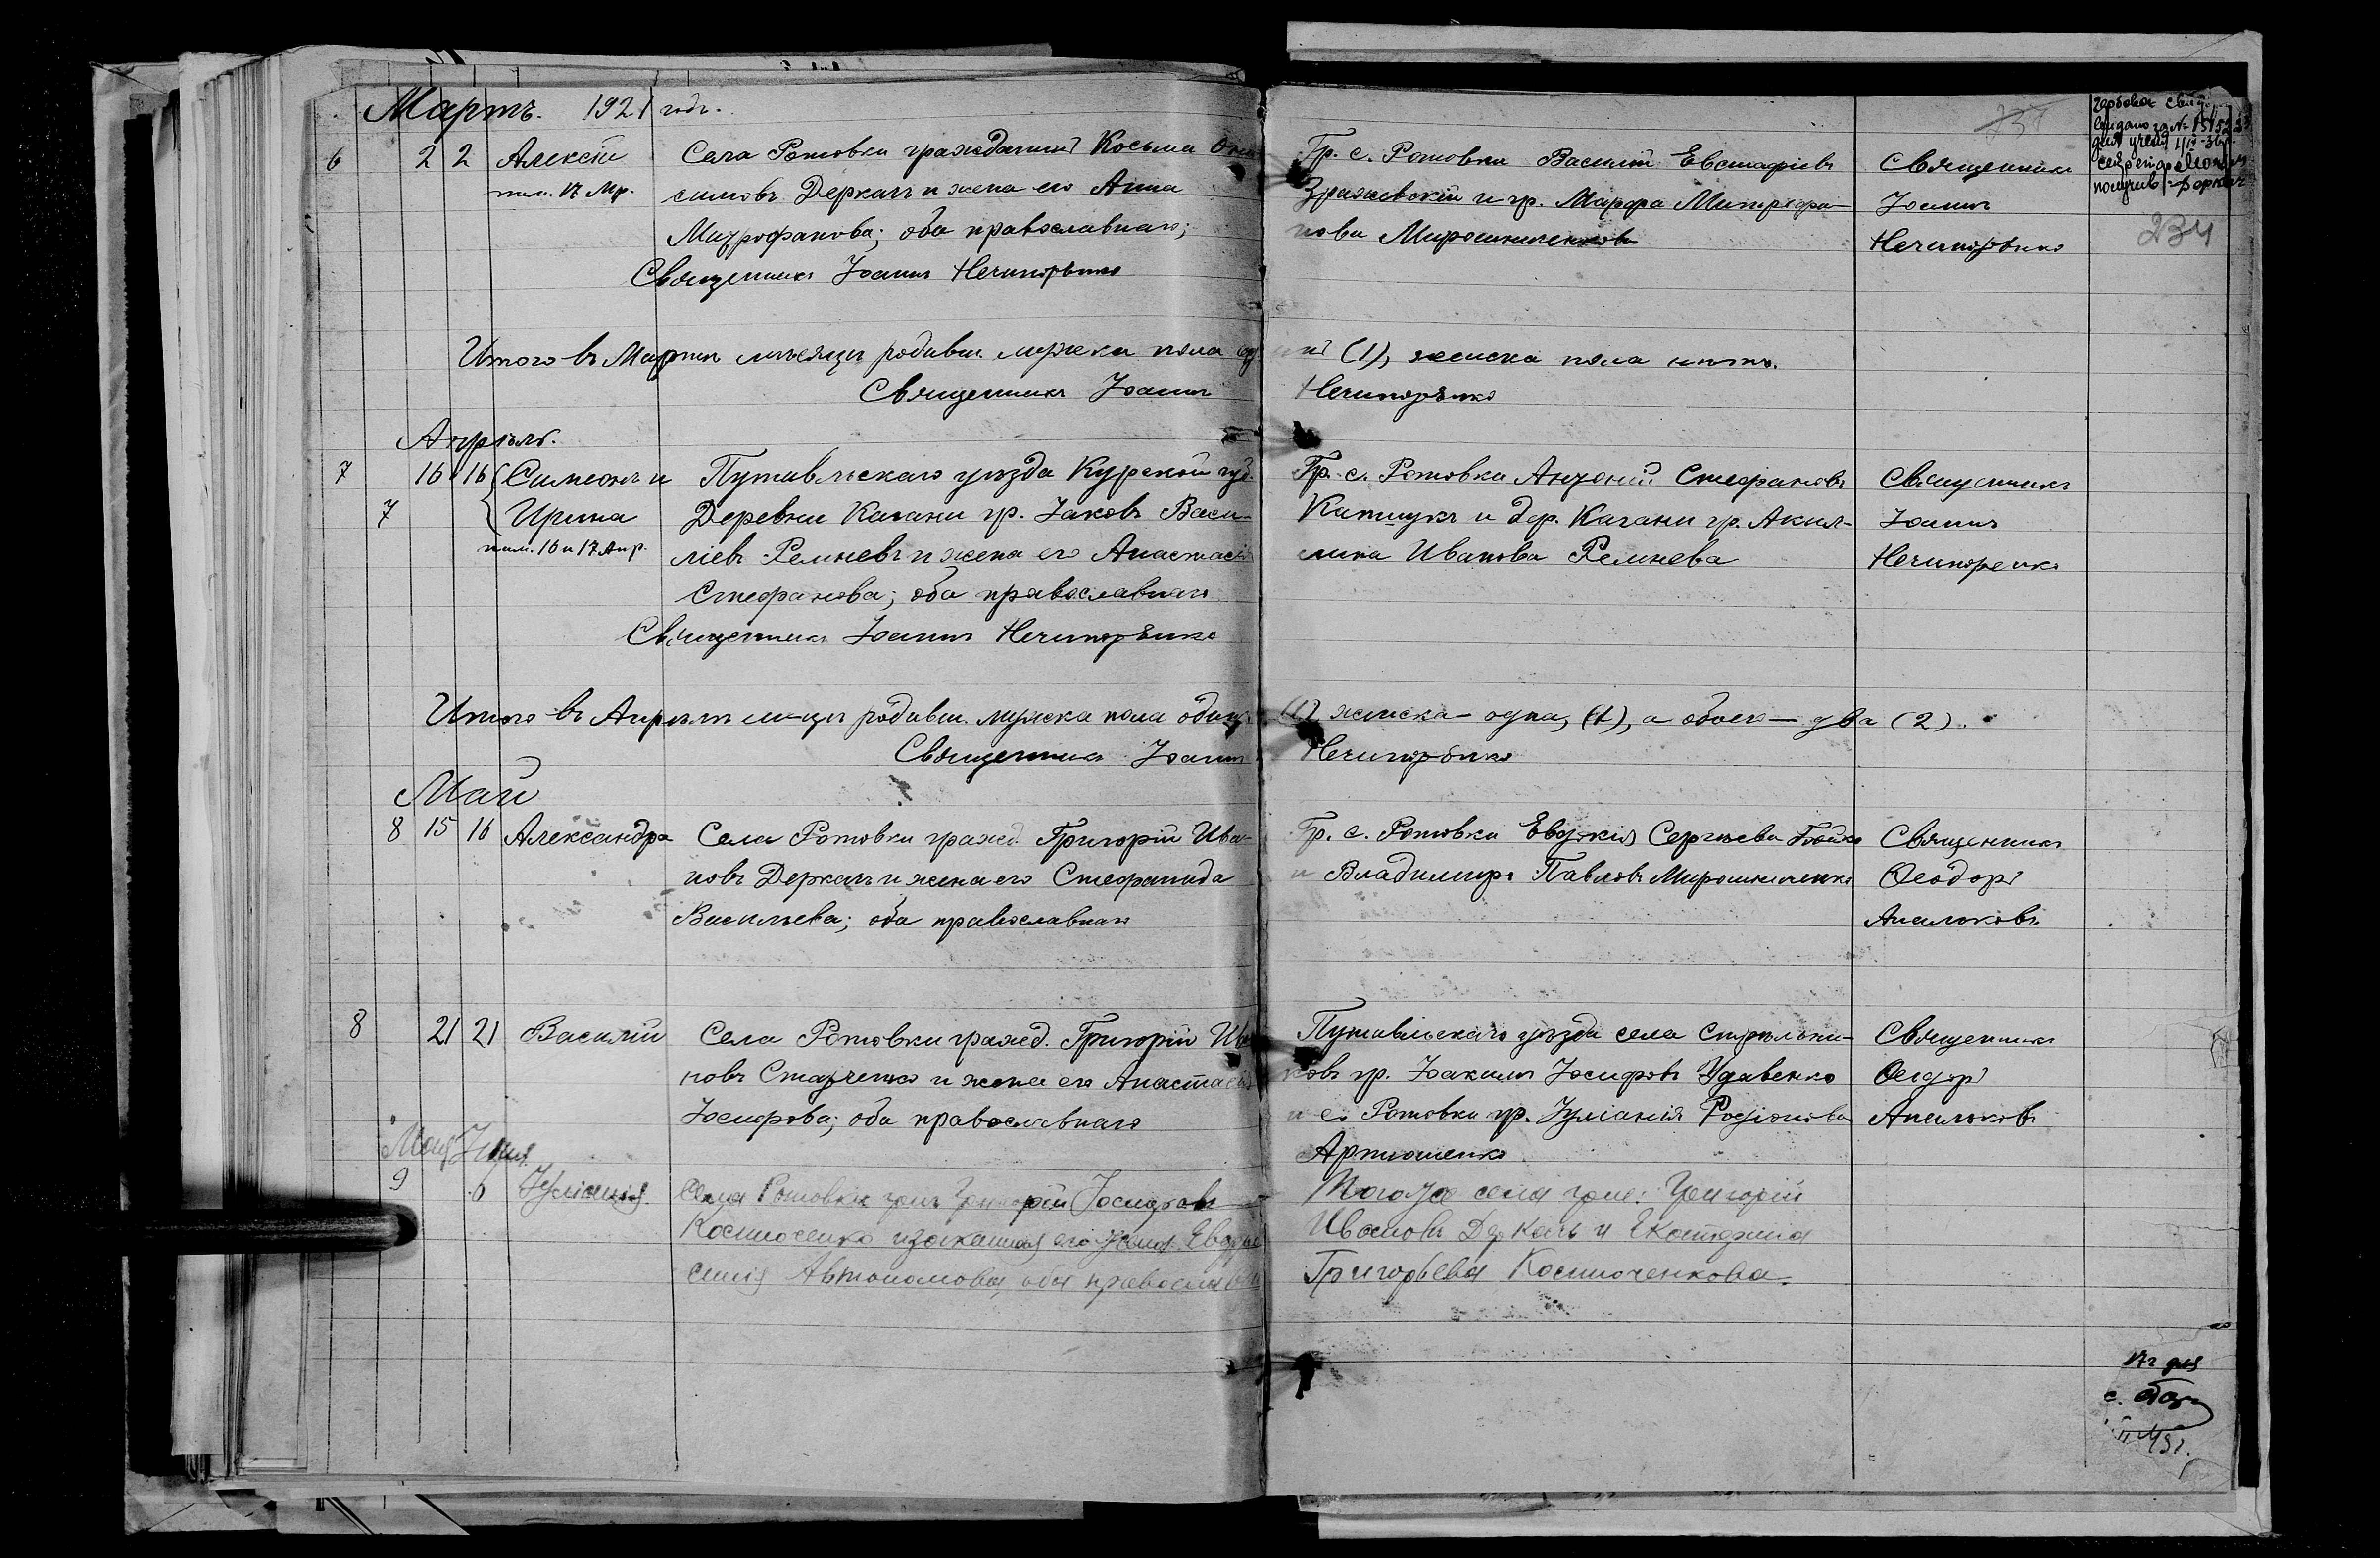 Мартъ. 1921 годъ.
6 2 2 Алексѣй Села Ротовки гражданинъ Косьма Они-
пом. 17 Мр. симовъ Деркачъ и жена его Анна
Митрофанова; оба православнаго;
Священникъ Іоаннъ Нечипорѣнко
Гр. с. Ротовки Василій Евстафіевъ
Зражевскій и гр. Марфа Митрофа-
нова Мирошниченкова
Священникъ
Іоаннъ
Нечипорѣнко
234
Итого въ Мартѣ мѣсяцѣ родивш. мужска пола од инъ (1), женска пола нѣтъ.
Священникъ Іоаннъ Нечипорѣнко
Апрѣль.
7 16 16 Симеонъ и Путивльскаго уѣзда Курской губ.
7 Ирина Деревни Качани гр. Іаковъ Васи-
пом. 16 и 17 Апр. ліевъ Ремневъ и жена его Анастасія
Стефанова; оба православнаго
Священникъ Іоаннъ Нечипорѣнко
Гр. с. Ротовки Антоній Стефановъ
Катщукъ и дер. Качани гр. Акил-
лина Иванова Ремнева
Священникъ
Іоаннъ
Нечипоренко
Итого въ Апрѣлѣ м-цѣ родивш. мужска пола одинъ (1) женска — одна, (1), а обоего — два (2).
Священникъ Іоаннъ Нечипорѣнко
Май
8 15 16 Александра Села Ротовки гражд. Григорій Ива-
новъ Деркачъ и жена его Стефанида
Васильева; оба православнаго
Гр. с. Ротовки Евдокія Сергѣева Бойко
и Владимиръ Павловъ Мирошниченко
Священникъ
Ѳеодоръ
Апальковъ
8 21 21 Василій Села Ротовки гражд. Григорій Ива-
новъ Старченко и жена его Анастасія
Іосифова; оба православнаго
Путивльскаго уѣзда села Стрѣльни-
ковъ гр. Іоакимъ Іосифовъ Удавенко
и с. Ротовки гр. Іуліанія Родіонова
Артюшенко
Священникъ
Ѳеодоръ
Апальковъ
Іюня
9 6 Іуліанія. Села Ротовки гр. Григорій Іосифовъ
Костюченко и законная его жена Евдо
Автономова, оба православн
Того же села граж: Григорій
Ивановъ Деркачъ и Екатерина
Григорьева Костюченкова.